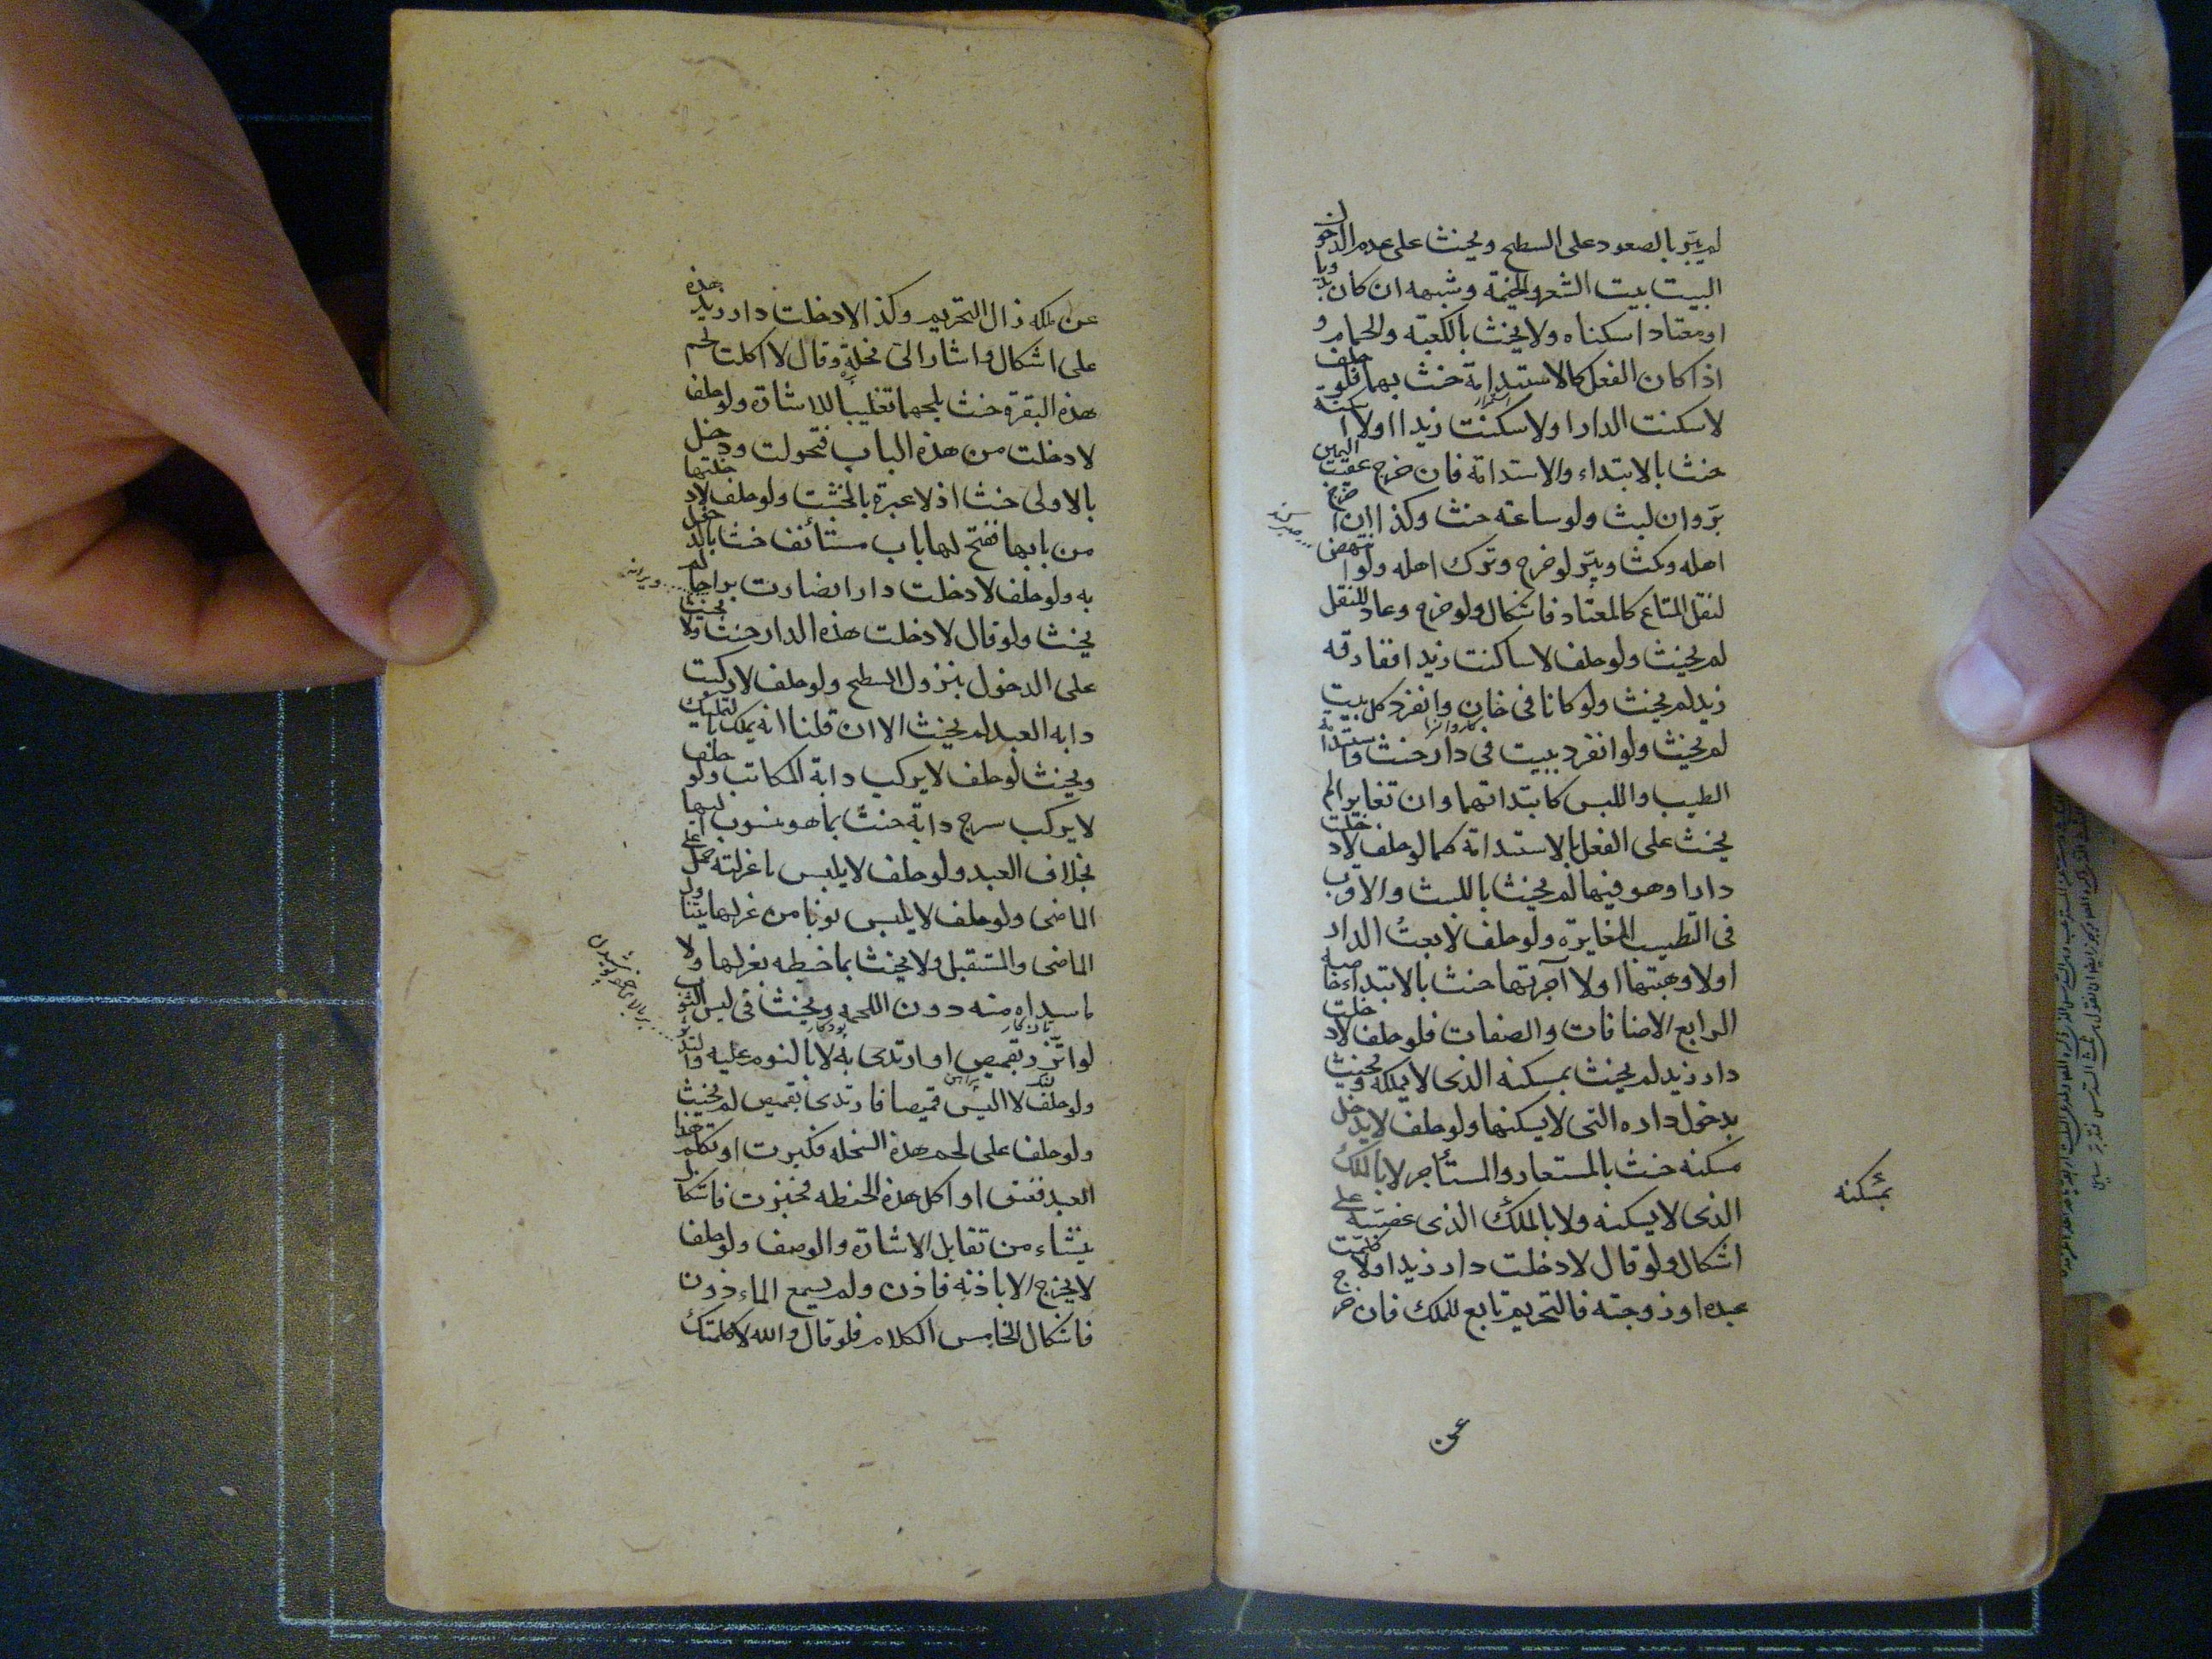 لم يبرّ بالصعود على السطح ويحنث على عدم الدخول
البيت بيت الشعر والخيمة وشبهه ان كان بدويا
او معتادا سكناه ولا يحنث بالكعبة والحمام و
اذا كان الفعل كالاستدامة حنث بهما فلو حلف
لاسكنت الدار او لاسكنت زيدا او لا اسكنته
حنث بالابتداء والاستدامة فان خرج عقيب اليمين
برّ وان لبث ولو ساعته حنث وكذا ان اخرج
اهله ومكث ويبرّ لو خرج وترك اهله ولو انتهض
لنقل المتاع كالمعتاد فاشكال ولو خرج وعاد للنقل
لم يحنث ولو حلف لا ساكنت زيدا ففارقه
زيد لم يحنث ولو كانا في خان وانفرد كل ببيت
كاروانسرا
لم يحنث ولو انفرد ببيت في دار حنث واستدامة
الطيب واللبس كابتدائهما وان تغاير الم
يحنث على الفعل بالاستدامة كما لو حلف لا دخلت
دارا وهو فيها لم يحنث باللبث والاقرب
في التطيب المغايرة ولو حلف لا بعت الدار
او لا وهبتها او لا آجرتها حنث بالابتداء خاصة
الرابع الاضافات والصفات فلو حلف لا دخلت
دار زيد لم يحنث بمسكنه الذى لا يملكه ويحنث
بدخول داره التى لا يسكنها ولو حلف لا يدخل
مسكنه حنث بالمستعار والمستأجر لا بالملك
بمسكنه
الذى لا يسكنه ولا بالملك الذى غصبه على
اشكال ولو قال لا دخلت دار زيد او لا كلمت
عبده او زوجته فالتحريم تابع للملك فان خرج
عن
عن ملكه زال التحريم وكذا لا دخلت دار زيد هذه
على اشكال واشار الى نخلة وقال لا اكلت لحم
هذه البقرة حنث بلحمها تغليبا للاشارة ولو حلف
لا دخلت من هذه الباب فتحولت ودخل
بالاولى حنث اذ لا عبرة بالخشب ولو حلف لا دخلتها
من بابها ففتح لها باب مستأنف حنث بالدخول
به ولو حلف لا دخلت دارا فصارت براحا لم
ويرانه
يحنث ولو قال لا دخلت هذه الدار حنث ولا يحنث
على الدخول بنزول السطح ولو حلف لا ركبت
دابة العبد لم يحنث الا ان قلنا انه يملك بالتمليك
ويحنث لو حلف لا يركب دابة المكاتب ولو حلف
لا يركب سرج دابة حنث بما هو منسوب اليها
بخلاف العبد ولو حلف لا يلبس ما غزلته حمل على
الماضى ولو حلف لا يلبس ثوبا من غزلها يتناول
الماضى والمستقبل ولا يحنث بما خيطه بغزلها ولا
ما سداه منه دون اللحمه ويحنث في لبس الثوب
لو اتزر بقميص او ارتدى به لا بالنوم عليه والتدثر
ولو حلف لا البس قميصا فارتدى بقميص لم يحنث
ولو حلف على لحم هذه السخله فكبرت او تكلم هذا
العبد فعتق او اكل هذه الحنطه فخبزت فاشكال
ينشاء من تقابل الاشارة والوصف ولو حلف
لا يخرج الا باذنه فاذن ولم يسمع الماءذون
فاشكال الخامس الكلام فلو قال والله لا كلمتك